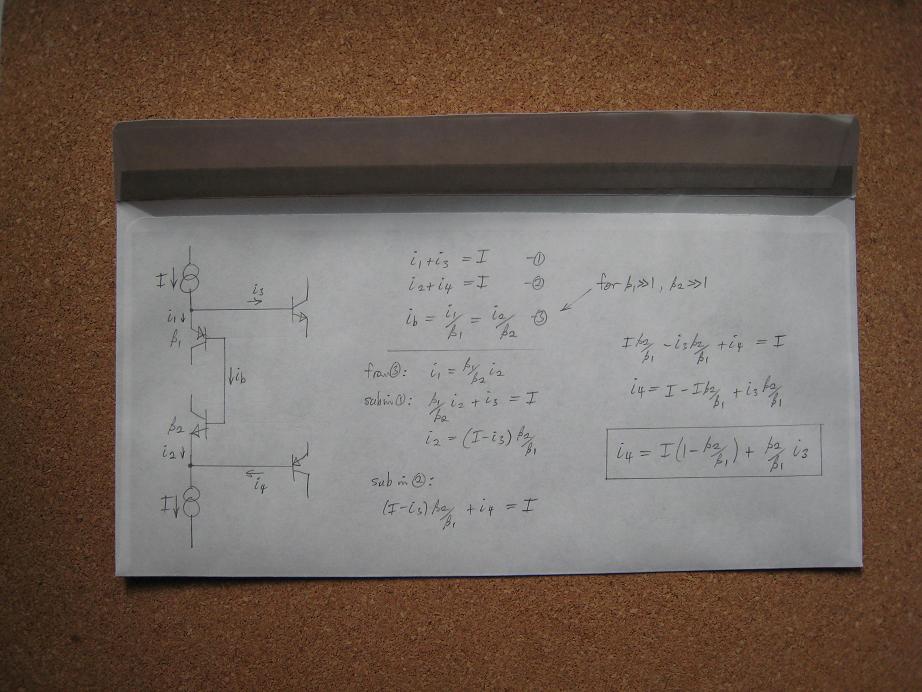 I
i3
i1
β1
ib
β2
i2
i4
I
i1 + i3 = I -①
i2 + i4 = I -②
ib = i1/β1 = i2/β2 -③
for β1≫1, β2≫1
from③: i1 = β1/β2 i2
sub in①: β1/β2 i2 + i3 = I
i2 = (I-i3) β2/β1
sub in②:
(I-i3) β2/β1 + i4 = I
I β2/β1 - i3 β2/β1 + i4 = I
i4 = I - I β2/β1 + i3 β2/β1
i4 = I(1 - β2/β1) + β2/β1 i3